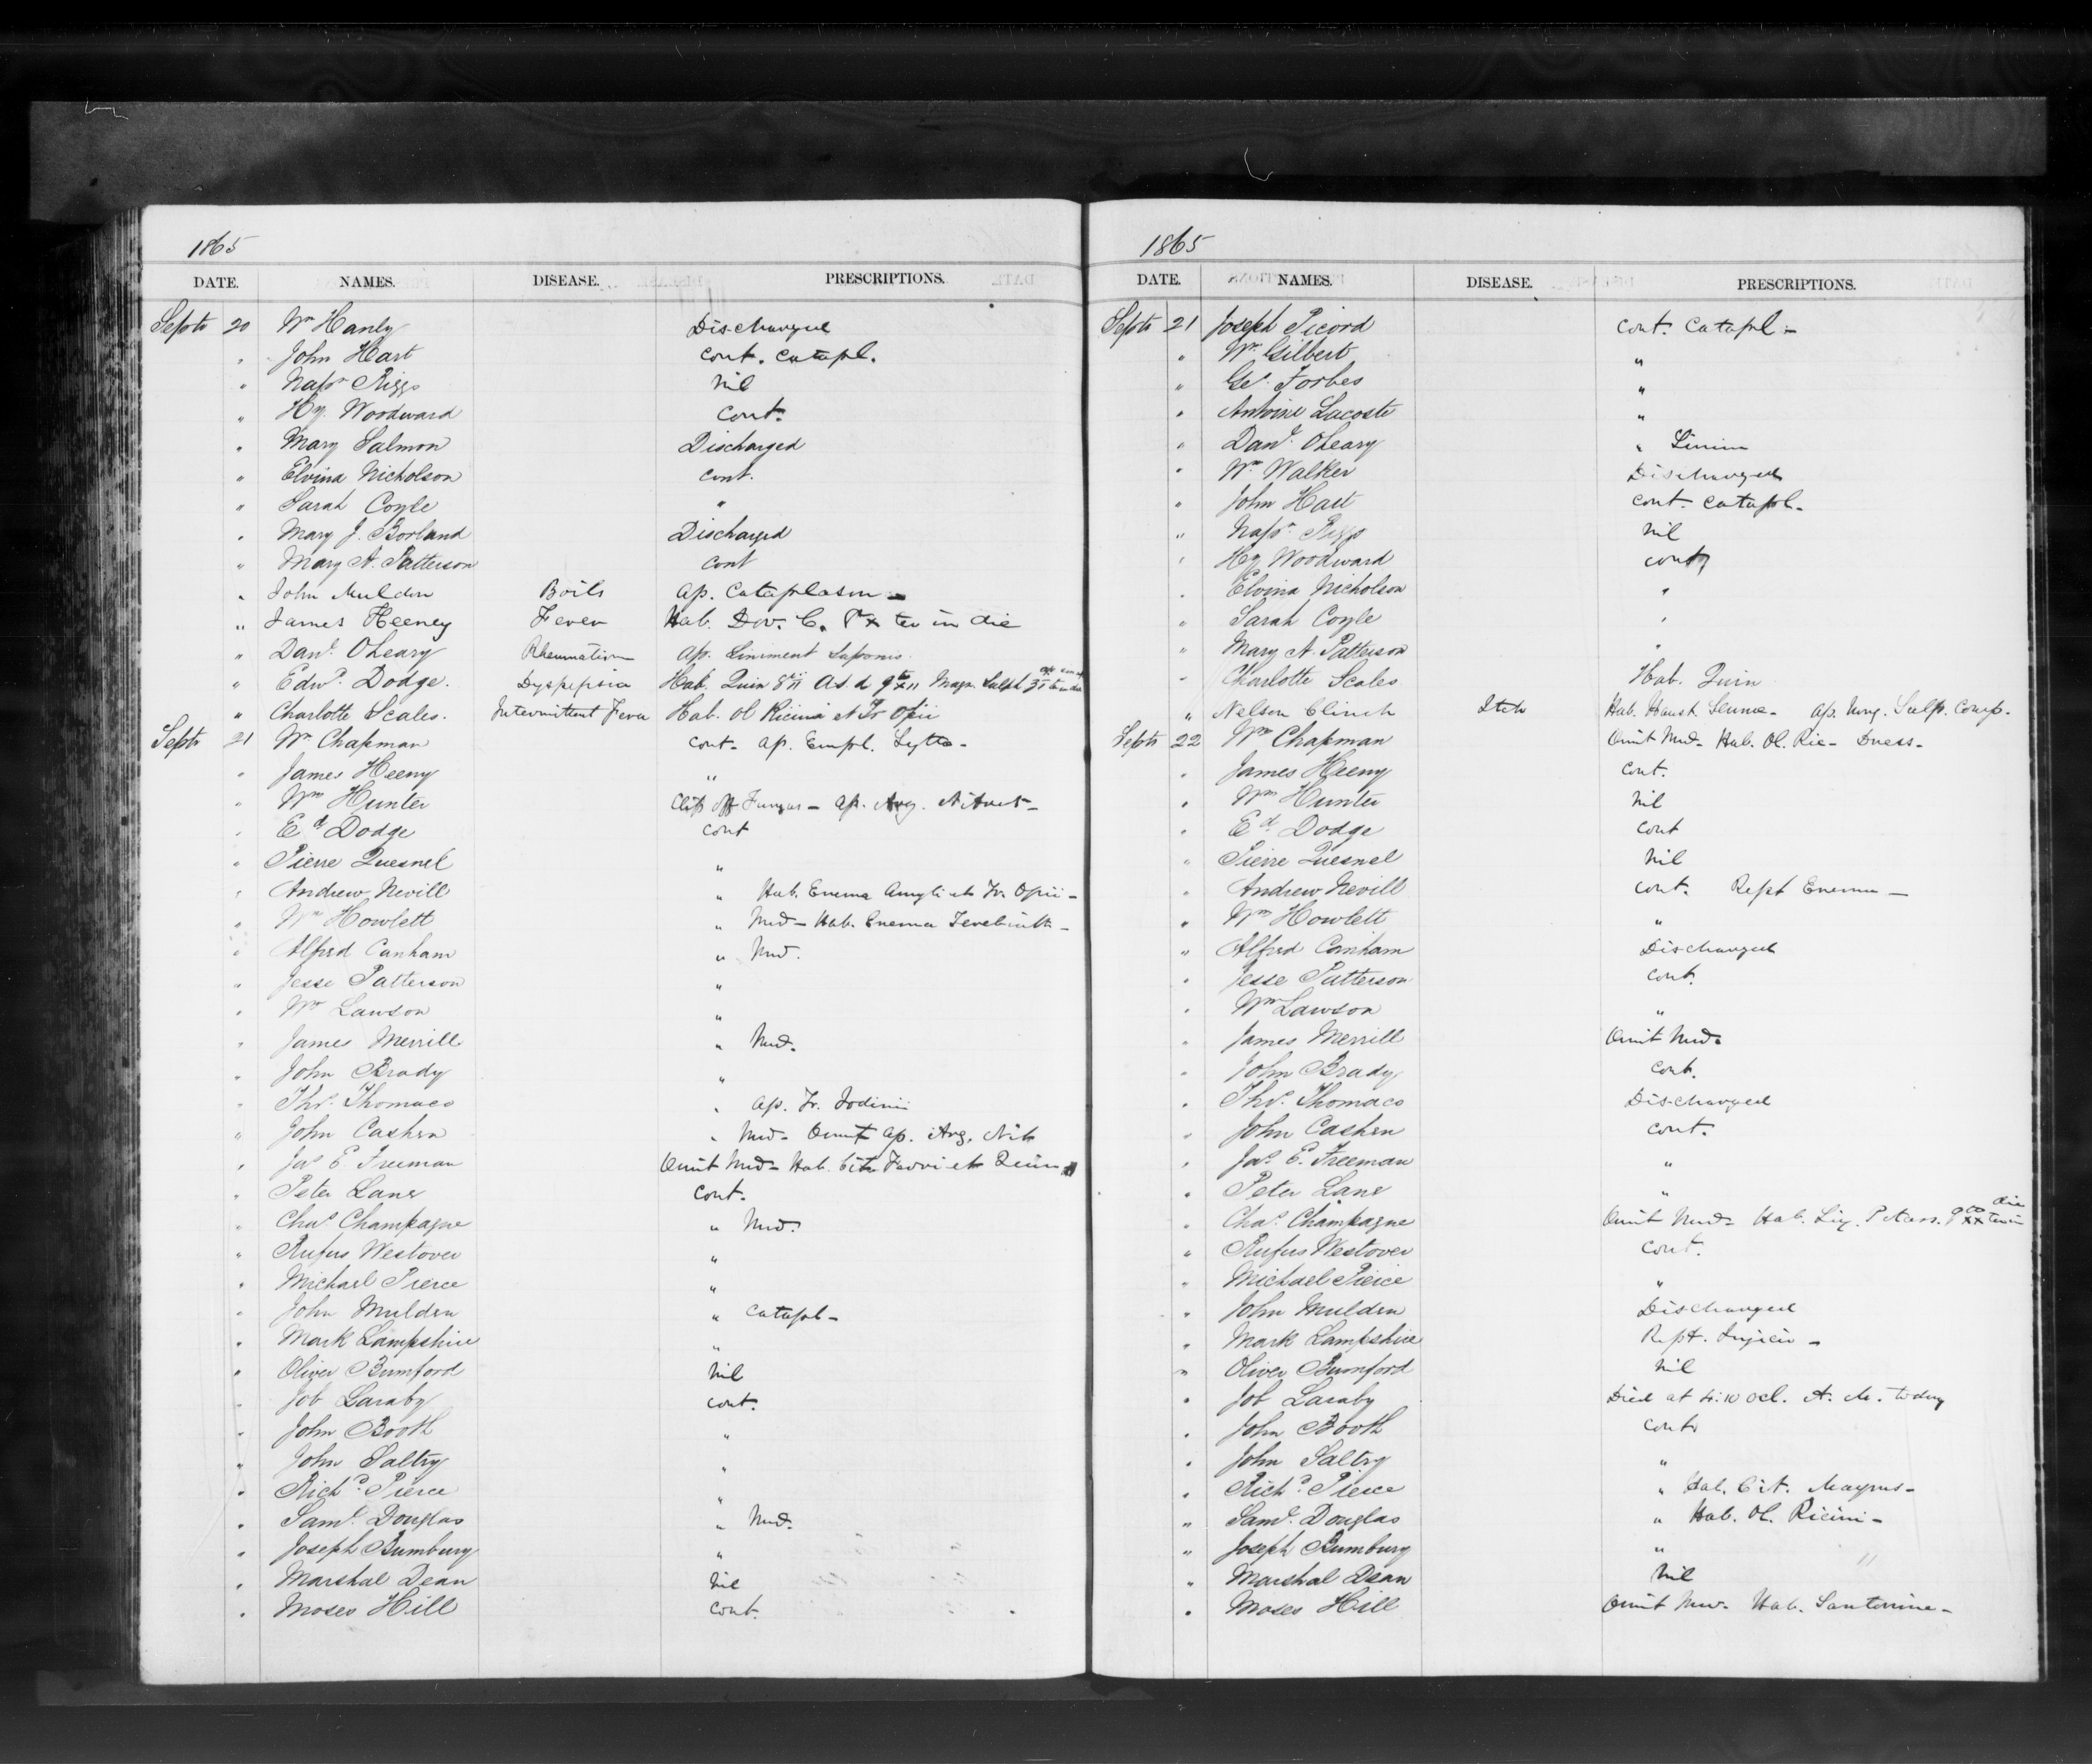 1865
DATE. NAMES. DISEASE. PRESCRIPTIONS.
Septr 20 Wm Hanly Discharged
" John Hart cont. catapl.
" Napn Riggs nil
" Hy. Woodward cont.
" Mary Salmon Discharged
" Elvina Nicholson cont.
" Sarah Coyle "
" Mary J. Borland Discharged
" Mary A. Patterson cont
" John Mulden Boils ap. Cataplasm
" James Heeney Fever Hab. Dov. ter in die
" Danl. OLeary Rheumatism ap. Liniment Saponis.
" Edwd. Dodge. Dyspepsia Hab. Quin Magn. Sulph
" Charlotte Scales. Intermittent Fever Hab. Ol Ricini et Tr Opii
Septr 21 Wm Chapman cont- ap. Empl. Lytta-
" James Heeny "
" Wm Hunter Clip off Fungus - ap. Arg. Nitras-
" Ed Dodge cont
" Pierre Quesnel "
" Andrew Nevill " Hab. Enema Amyli et Tr. Opii-
" Wm Howlett " Med- Hab. Enema Terebinth-
" Alfred Canham " Med.
" Jesse Patterson "
" Wm Lawson "
" James Merrill " Med.
" John Brady "
" Thos. Thomaco " ap. Tr. Iodinii
" John Cashen " Med- Omit ap. Arg. Nit
" Jas E Freeman Omit Med- Hab. Cit. Ferri et Quin
" Peter Lane cont.
" Chas Champagne " Med.
" Rufus Westover "
" Michael Pierce "
" John Mulden " catapl-
" Mark Lampshire "
" Oliver Bumford nil
" Job Laraby cont.
" John Booth "
" John Saltry "
" Richd. Pierce "
" Saml. Douglas " Med.
" Joseph Bumbury "
" Marshal Dean nil
" Moses Hill cont.
1865
DATE. NAMES. DISEASE. PRESCRIPTIONS.
Septr 21 Joseph Picord cont. catapl-
" Wm Gilbert "
" Geo. Forbes "
" Antoine Lacoste "
" Danl. OLeary " Linim
" Wm Walker Discharged
" John Hart cont. catapl-
" Napn. Riggs nil
" Hy Woodward cont
" Elvina Nicholson "
" Sarah Coyle "
" Mary A. Patterson "
" Charlotte Scales Hab. Quin
" Nelson Clinch Itch Hab. Haust. Senna- ap. Ung. Sulp. Comp.
Septr 22 Wm Chapman Omit Med- Hab. Ol. Ric- Dress-
" James Heeny cont.
" Wm Hunter nil
" Ed. Dodge cont
" Pierre Quesnel nil
" Andrew Nevill cont. Rept Enema-
" Wm Howlett "
" Alfred Canham Discharged
" Jesse Patterson cont.
" Wm Lawson "
" James Merrill Omit Med.
" John Brady cont.
" Thos. Thomaco Discharged
" John Cashen cont.
" Jas. E. Freeman "
" Peter Lane "
" Chas. Champagne Omit Med- Hab. Liq. Potass. ter in die
" Rufus Westover cont.
" Michael Pierce "
" John Mulden Discharged
" Mark Lampshire Rept. Injecio-
" Oliver Bumford nil
" Job Laraby Died at 4.10 ocl. A. M. today
" John Booth cont
" John Saltry "
" Richd. Pierce " Hab. Cit. Magnes-
" Saml. Douglas " Hab. Ol. Ricini-
" Joseph Bumbury "
" Marshal Dean nil
" Moses Hill Omit Med. Hab. Santonine-